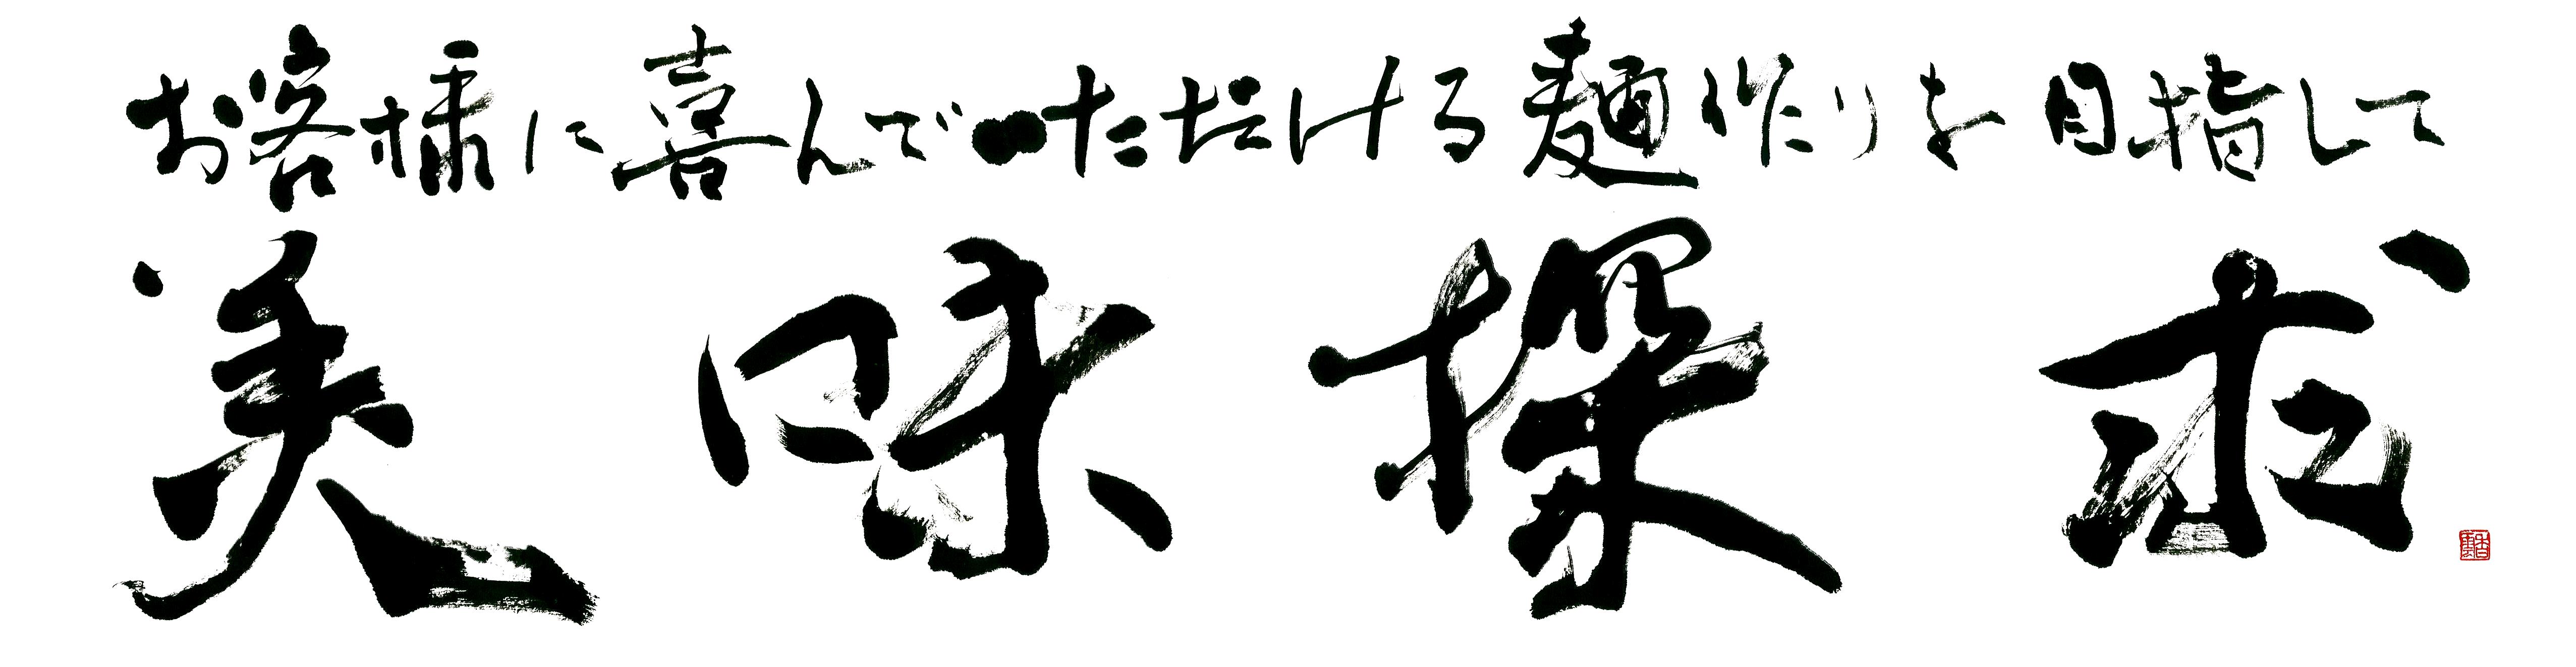 お客様に喜んでいただける麺作りを目指して
美味探求